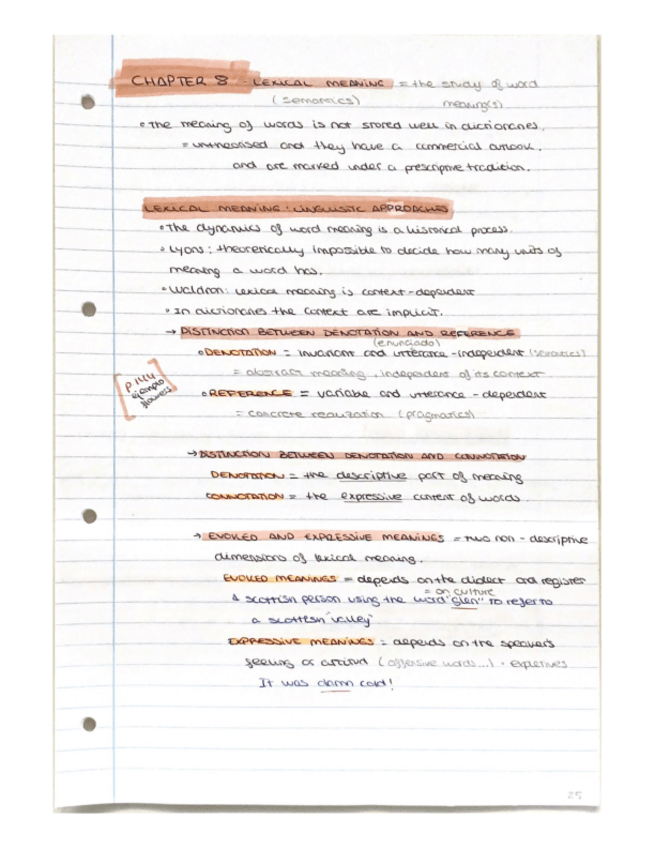 CHAPTER 8 - LEXICAL MEANING = the study of word
(semantics) meaning(s)
• The meaning of words is not stored well in dictionaries.
= untheorised and they have a commercial outlook.
and are marked under a prescriptive tradition.
LEXICAL MEANING: LINGUISTIC APPROACHES
• The dynamics of word meaning is a historical process.
• Lyons: theoretically impossible to decide how many units of
meaning a word has.
• Waldron: lexical meaning is context-dependent
• In dictionaries the context are implicit.
→ DISTINCTION BETWEEN DENOTATION AND REFERENCE
(enunciado)
• DENOTATION = invariant and utterance-independent (semantics)
= abstract meaning, independent of its context
p.144
ejemplo
flowers
• REFERENCE = variable and utterance-dependent
= concrete realization (pragmatics)
→ DISTINCTION BETWEEN DENOTATION AND CONNOTATION
DENOTATION = the descriptive part of meaning
CONNOTATION = the expressive content of words.
→ EVOKED AND EXPRESSIVE MEANINGS = two non-descriptive
dimensions of lexical meaning.
EVOKED MEANINGS = depends on the dialect and register
= on culture
A scottish person using the word "glen" to refer to
a scottish "valley"
EXPRESSIVE MEANINGS = depends on the speaker's
feeling or attitud (offensive words...) · expletives
It was damn cold!
25